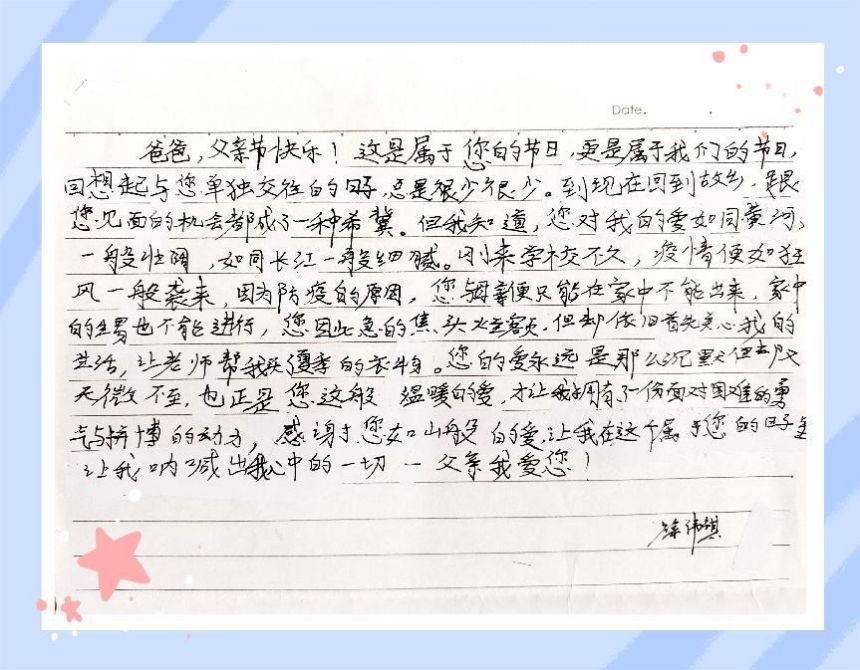 Date.
爸爸,父亲节快乐!这是属于您的节日,更是属于我们的节日,
回想起与您单独交往的日子,总是很少很少。到现在回到故乡,跟
您见面的机会都成了一种希冀。但我知道,您对我的爱如同黄河
一般壮阔,如同长江一般细腻。刚来学校不久,疫情便如狂
风一般袭来,因为防疫的原因,您姆亲便只能在家中不能出来,家中
的生易也不能进行,您因此急的焦头烂额。但却依旧首先关心我的
生活,让老师帮我买夏季的衣身。您的爱永远是那么沉默但却又
无微不至,也正是您这般温暖的爱,才让我拥有了一份面对困难的勇
气与拼博的动力,感谢于您如山般的爱,让我在这个属于您的日子里
让我呐喊出我心中的一切一父亲我爱您!
伟琪